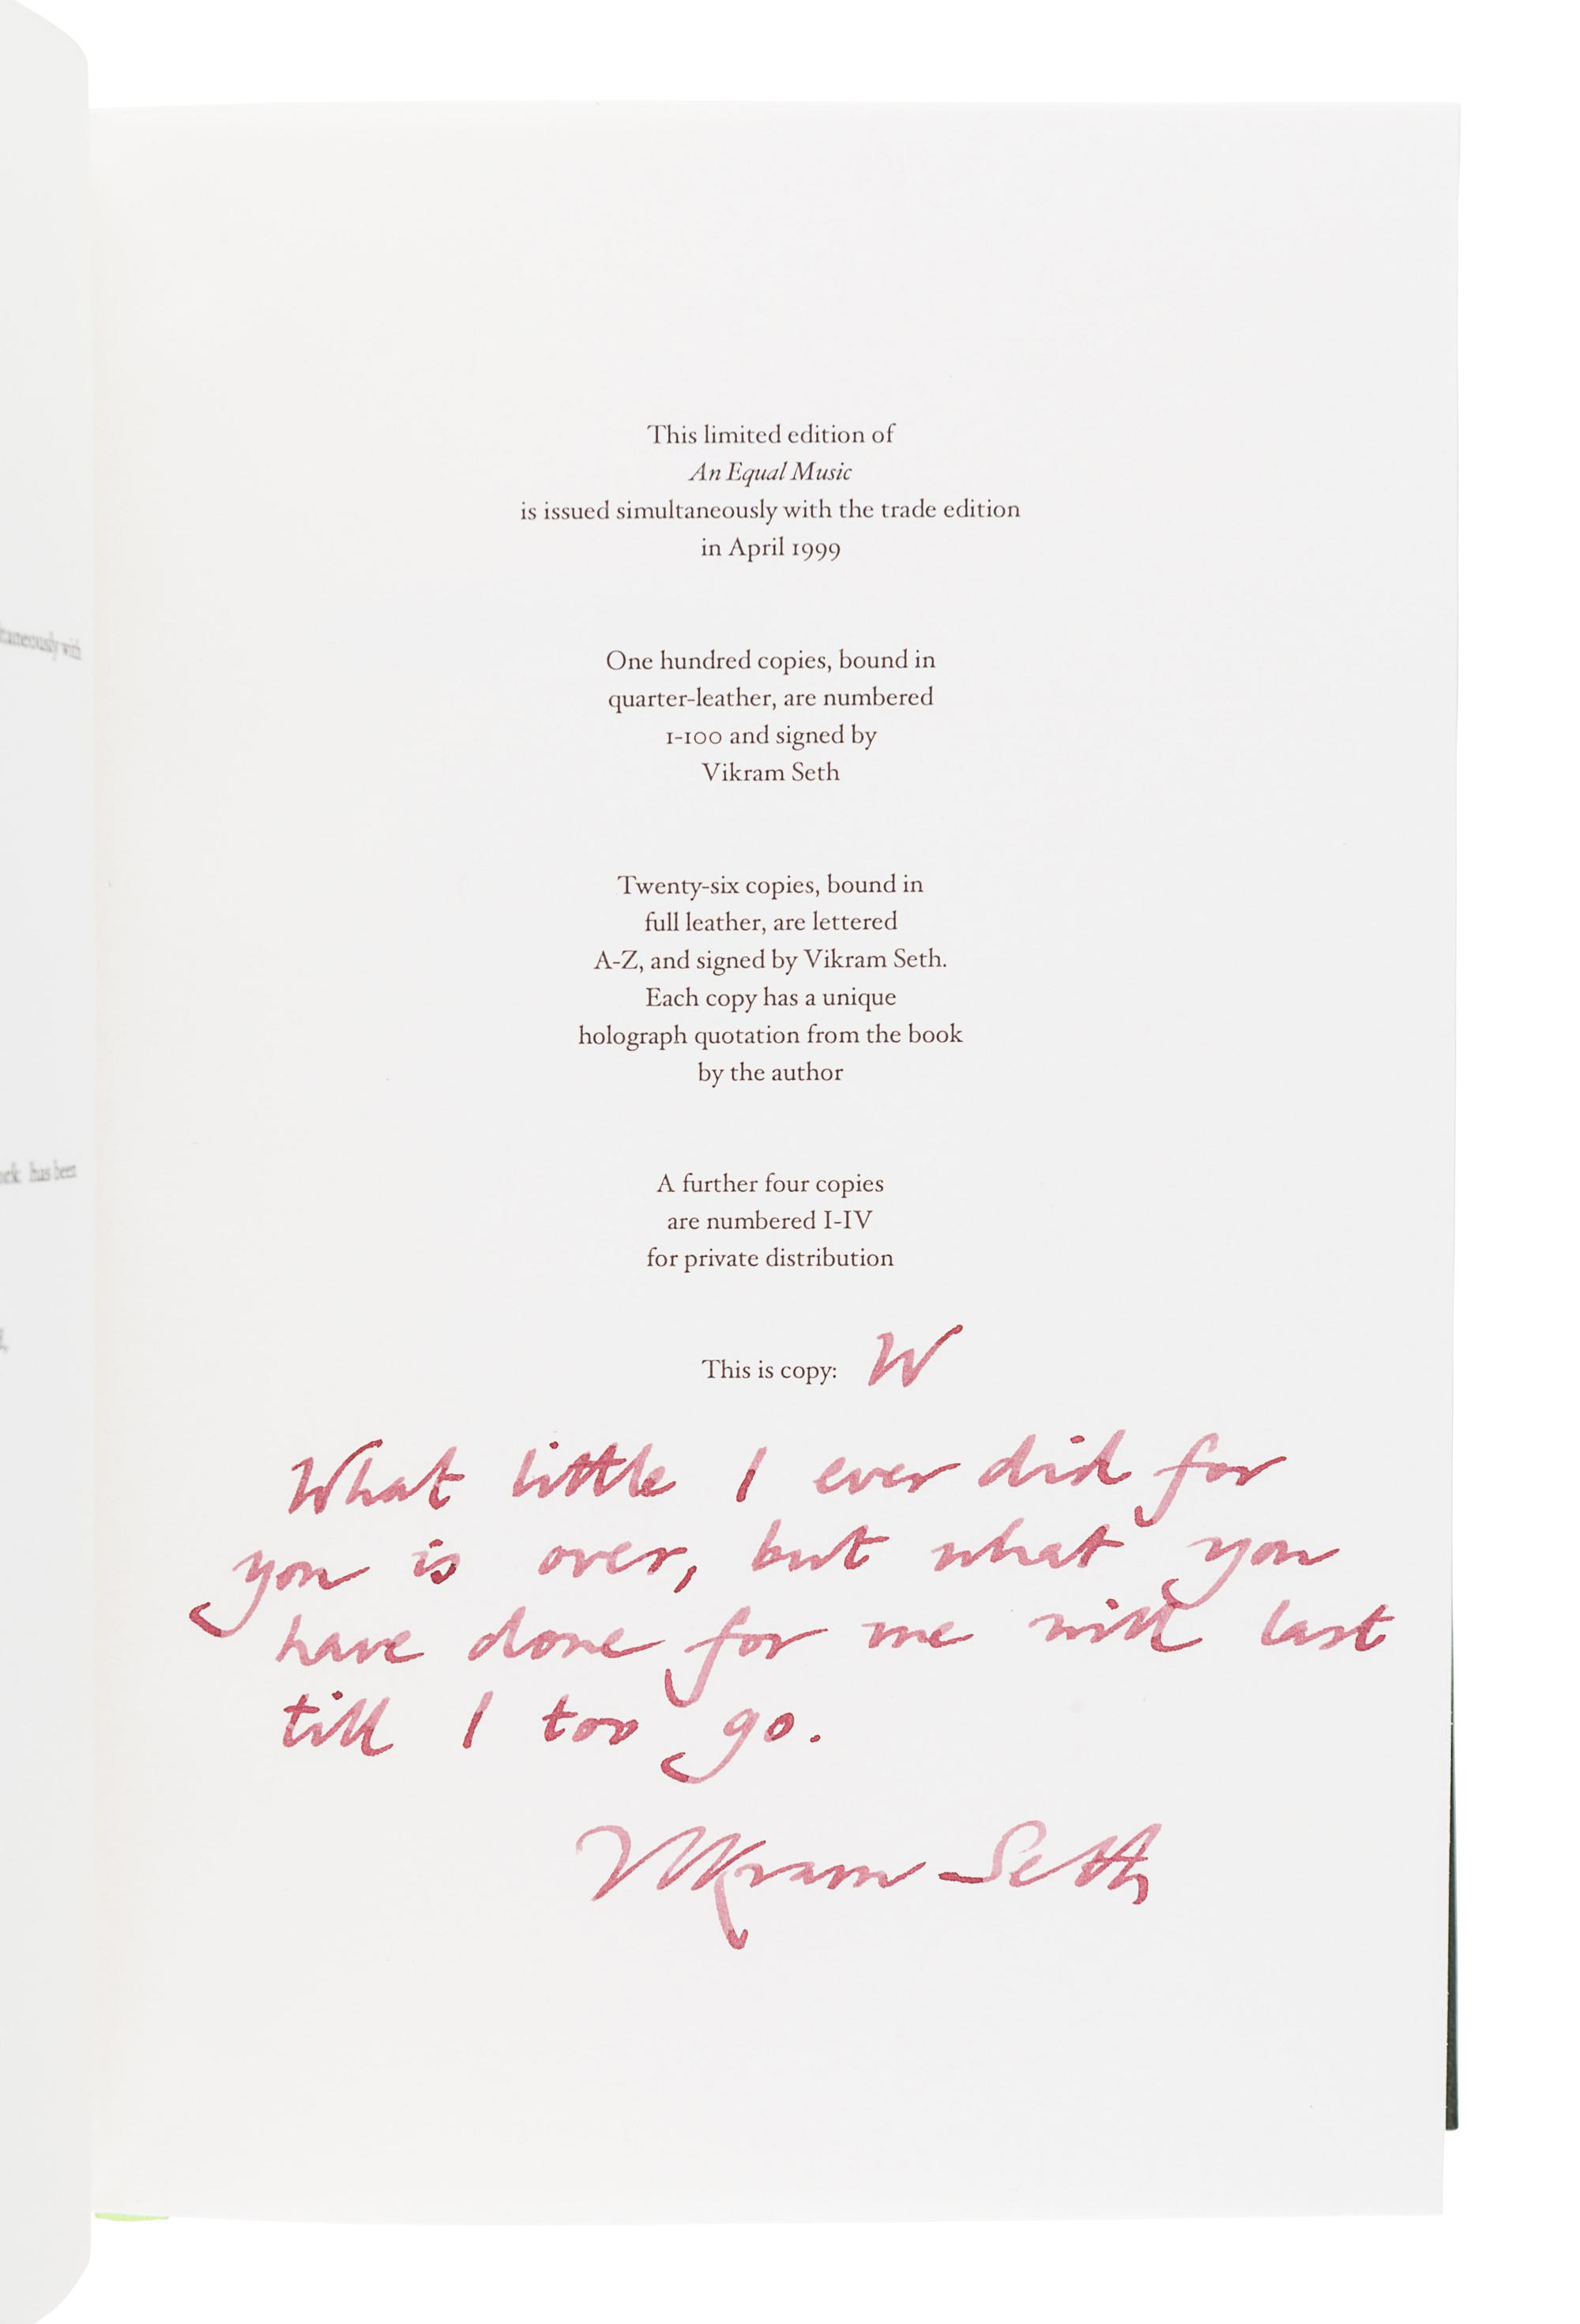 This limited edition of
An Equal Music
is issued simultaneously with the trade edition
in April 1999
One hundred copies, bound in
quarter-leather, are numbered
1-100 and signed by
Vikram Seth
Twenty-six copies, bound in
full leather, are lettered
A-Z, and signed by Vikram Seth.
Each copy has a unique
holograph quotation from the book
by the author
A further four copies
are numbered I-IV
for private distribution
This is copy: W
What little I ever did for
you is over, but what you
have done for me will last
till I too go.
Vikram Seth
has been